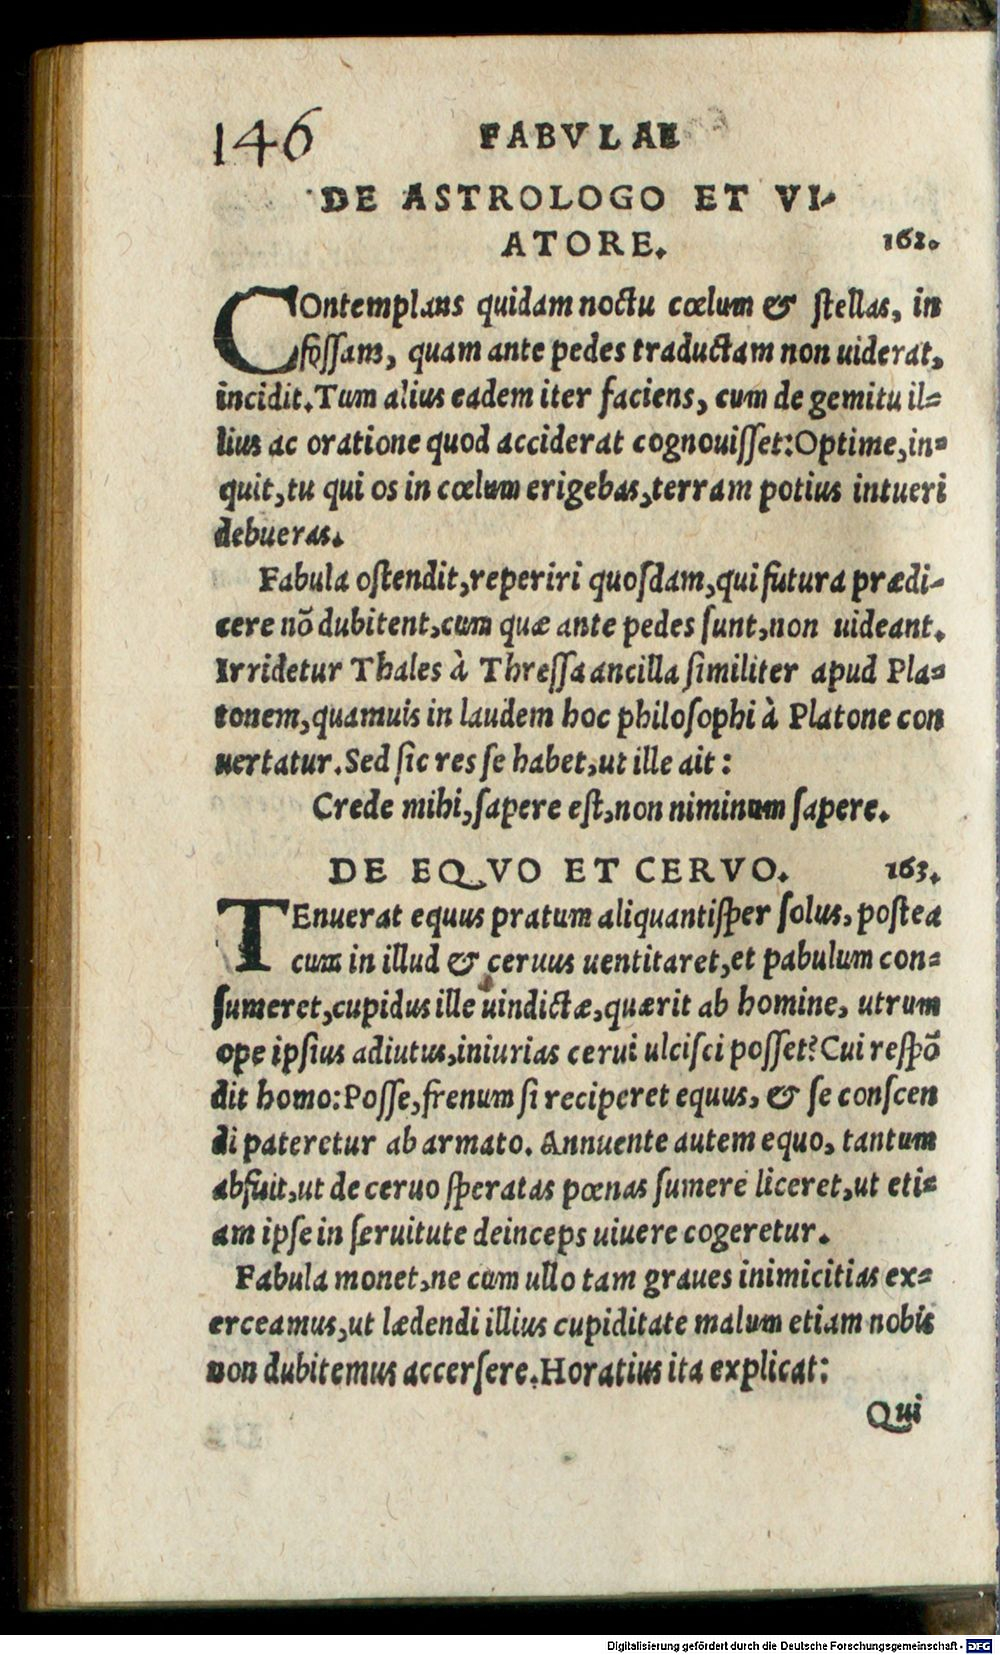 146 FABVLAE
DE ASTROLOGO ET VI-
ATORE. 162.
COntemplans quidam noctu cœlum & ſtellas, in
foſſam, quam ante pedes traductam non uiderat,
incidit. Tum alius eadem iter faciens, cum de gemitu il=
lius ac oratione quod acciderat cognouiſſet: Optime, in=
quit, tu qui os in cœlum erigebas, terram potius intueri
debueras.
Fabula oſtendit, reperiri quoſdam, qui futura prædi-
cere nõ dubitent, cum quæ ante pedes ſunt, non uideant.
Irridetur Thales à Threſſa ancilla ſimiliter apud Pla=
tonem, quamuis in laudem hoc philoſophi à Platone con
uertatur. Sed ſic res ſe habet, ut ille ait:
Crede mihi, ſapere eſt, non niminum ſapere.
DE EQVO ET CERVO. 163.
TEnuerat equus pratum aliquantiſper ſolus, poſtea
cum in illud & ceruus uentitaret, et pabulum con=
ſumeret, cupidus ille uindictæ, quærit ab homine, utrum
ope ipſius adiutus, iniurias cerui ulciſci poſſet? Cui reſpõ
dit homo: Poſſe, frenum ſi reciperet equus, & ſe conſcen
di pateretur ab armato. Annuente autem equo, tantum
abfuit, ut de ceruo ſperatas pœnas ſumere liceret, ut eti=
am ipſe in ſeruitute deinceps uiuere cogeretur.
Fabula monet, ne cum ullo tam graues inimicitias ex=
erceamus, ut lædendi illius cupiditate malum etiam nobis
non dubitemus accerſere. Horatius ita explicat:
Qui
Digitalisierung gefördert durch die Deutsche Forschungsgemeinschaft - DFG